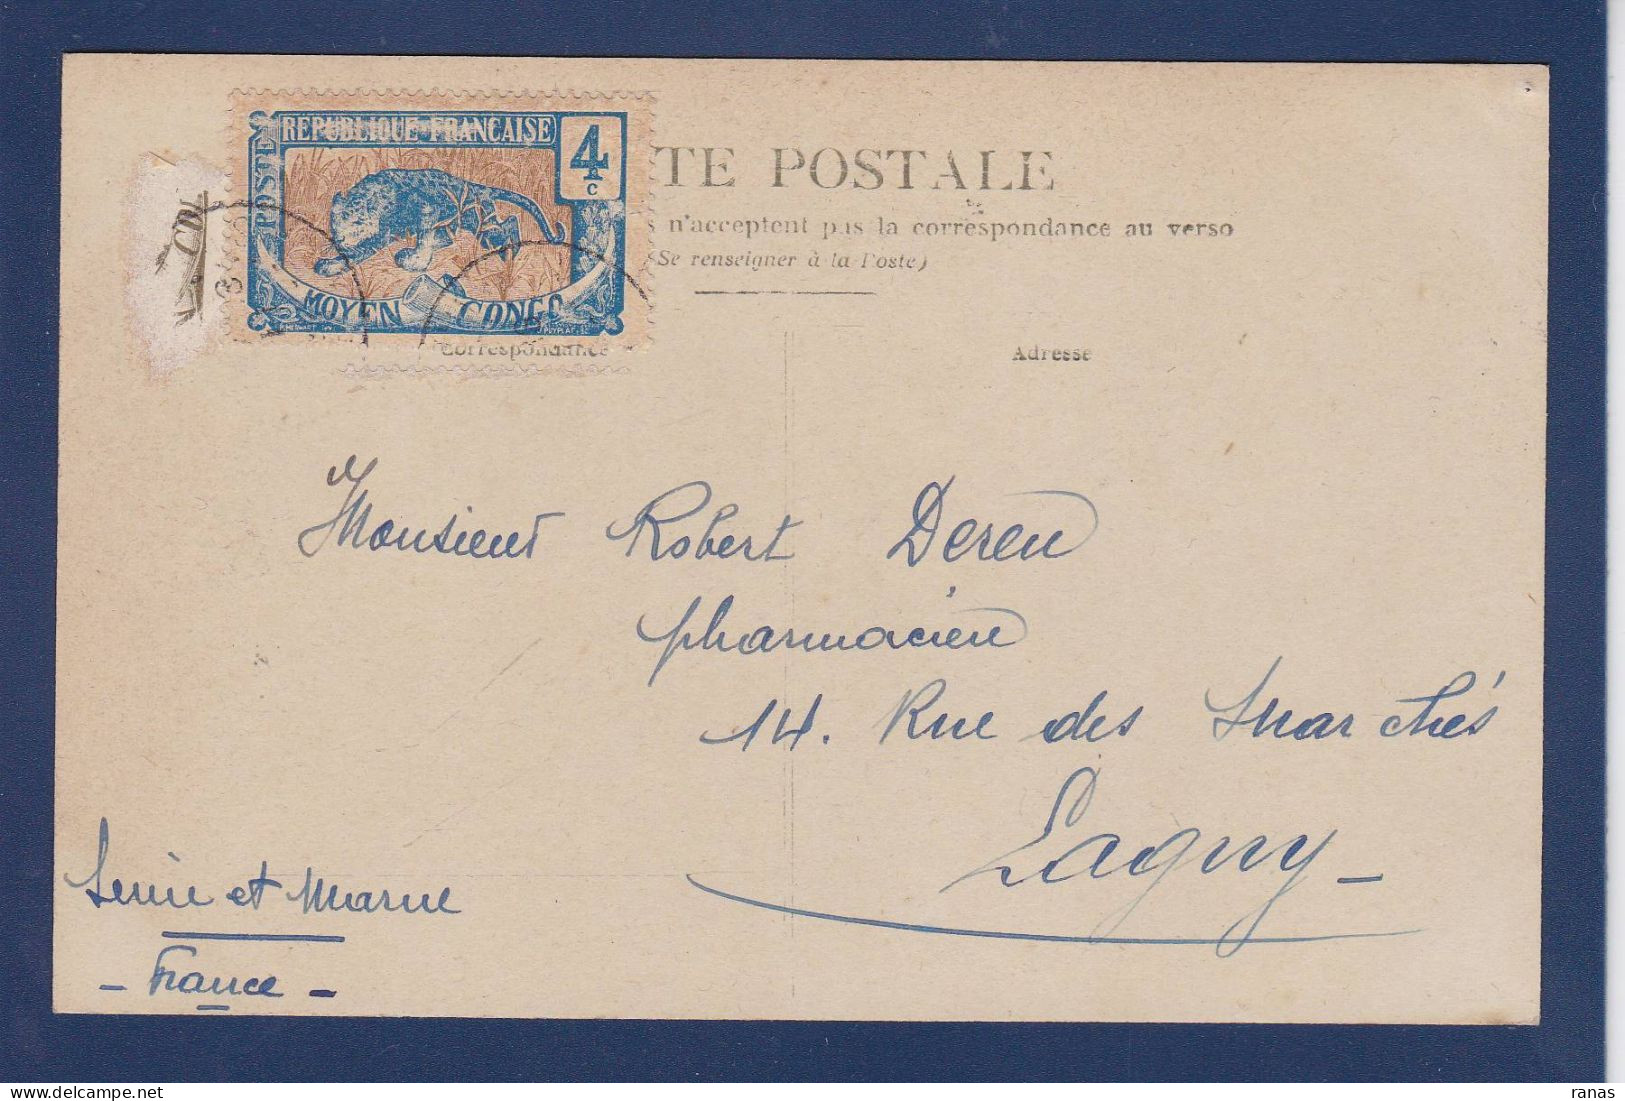 POSTES
REPUBLIQUE FRANÇAISE
4
c
MOYEN CONGO
TE POSTALE
s n'acceptent pas la correspondance au verso
(Se renseigner à la Poste)
Correspondance
Adresse
Monsieur Robert Dereu
pharmacien
14. Rue des Marchés
Lagny
Seine et Marne
- France -
ranas